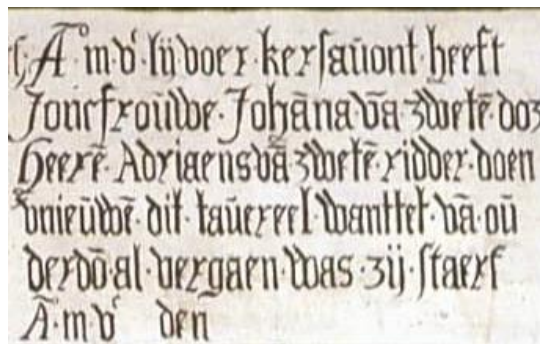 Ā · m · vᶜ · lij · voer · kersavont · heeft
Joncfrouwe · Johāna · vā · zwetē · doʒ
Heerē · Adriaens · vā · zwetē · ridder · doen
vnieuwē · dit · tauereel · wanttet · vā · ou
derdō · al · vergaen · was · zij · staerf
Ā · m · vᶜ den